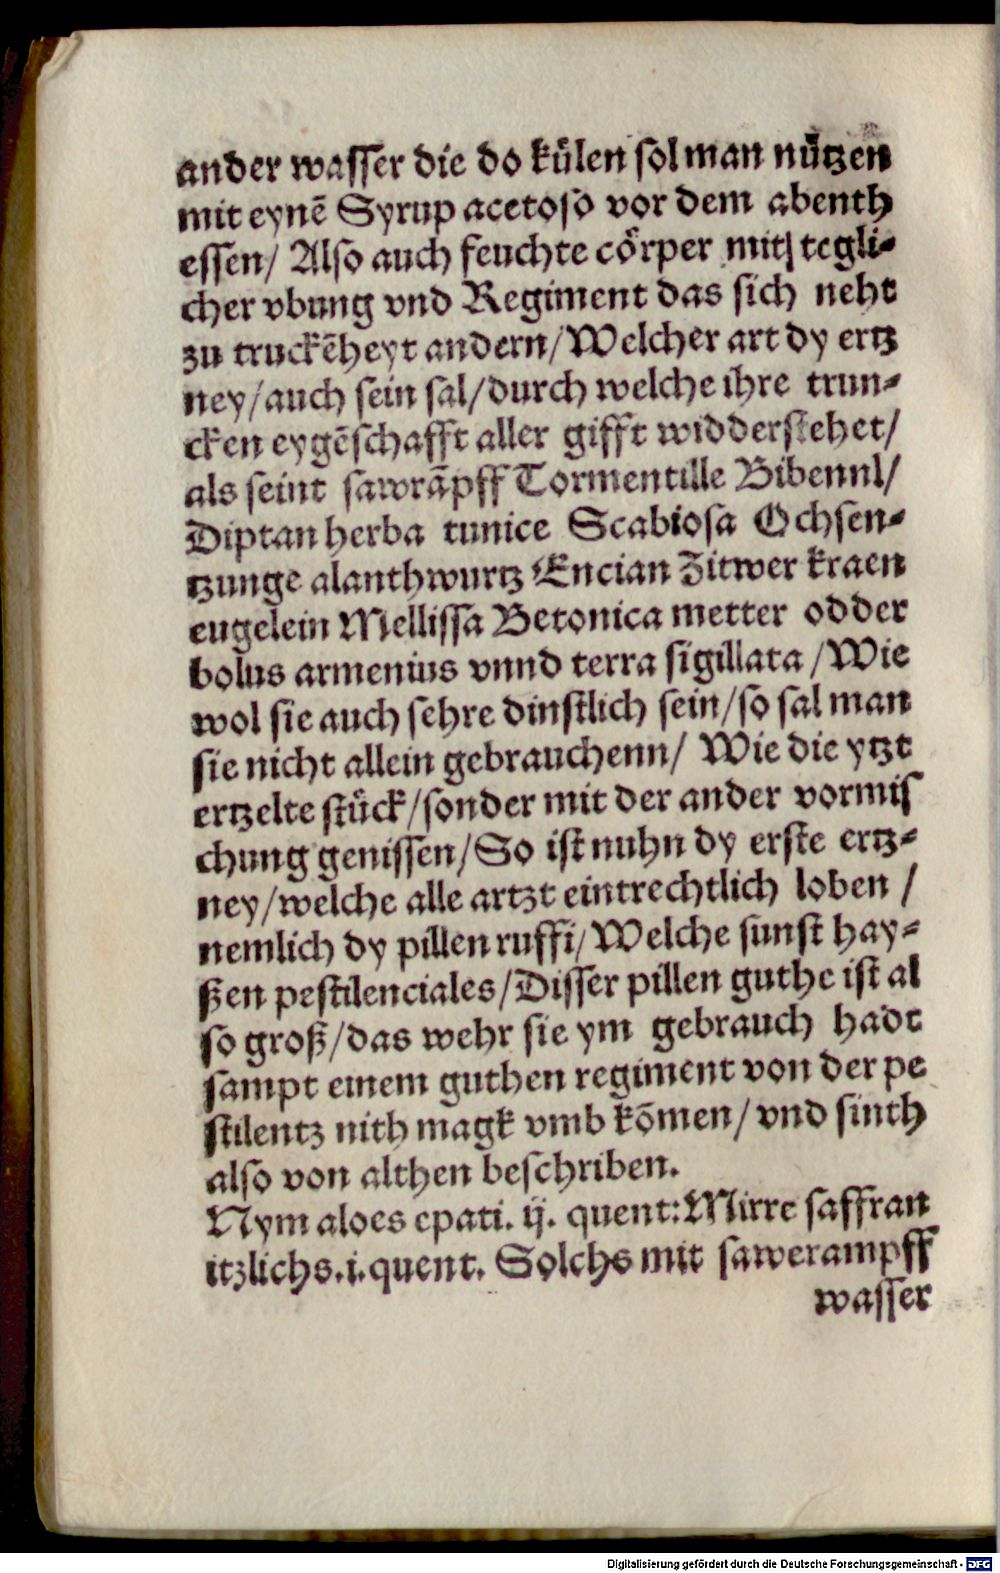 ander wasser die do kůlen sol man nůtzen
mit eynē Syrup acetoso vor dem abenth
essen/ Also auch feuchte cörper mit tegli⸗
cher vbung vnd Regiment das sich neht
zu truckēheyt andern/Welcher art dy ertz
ney/auch sein sal/durch welche ihre trun⸗
cken eygēschafft aller gifft widderstehet/
als seint sawrāpff Tormentille Bibennl/
Diptan herba tunice Scabiosa Ochsen⸗
tzunge alanthwurtz Encian Zitwer kraen
eugelein Mellissa Betonica metter odder
bolus armenius vnnd terra sigillata /Wie
wol sie auch sehre dinstlich sein/so sal man
sie nicht allein gebrauchenn/ Wie die ytzt
ertzelte stůck/sonder mit der ander vormis
chung genissen/So ist nuhn dy erste ertz⸗
ney/welche alle artzt eintrechtlich loben /
nemlich dy pillen ruffi/Welche sunst hay⸗
ßen pestilenciales/Disser pillen guthe ist al
so groß/das wehr sie ym gebrauch hadt
sampt einem guthen regiment von der pe
stilentz nith magk vmb kōmen/vnd sinth
also von althen beschriben.
Nym aloes epati. ij. quent:Mirre saffran
itzlichs.i.quent. Solchs mit sawerampff
wasser
Digitalisierung gefördert durch die Deutsche Forschungsgemeinschaft - DFG